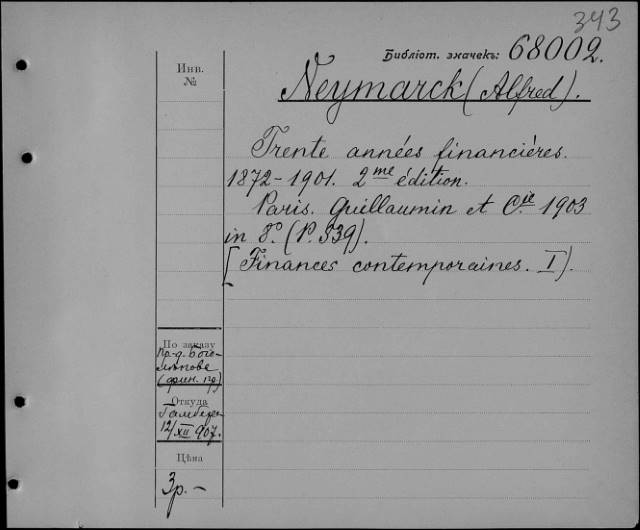 343
Библіот. значекъ: 68002.
Инв.
№
Neymarck (Alfred).
Trente années financiéres.
1872-1901. 2me édition.
Paris. Guillaumin et Cie 1903
in 8o. (P. 539).
[Finances contemporaines. I).
По заказу
Пр-д. Бого-
лѣпова
(фин. пр)
Откуда
12/XII 907.
Цѣна
3р. -